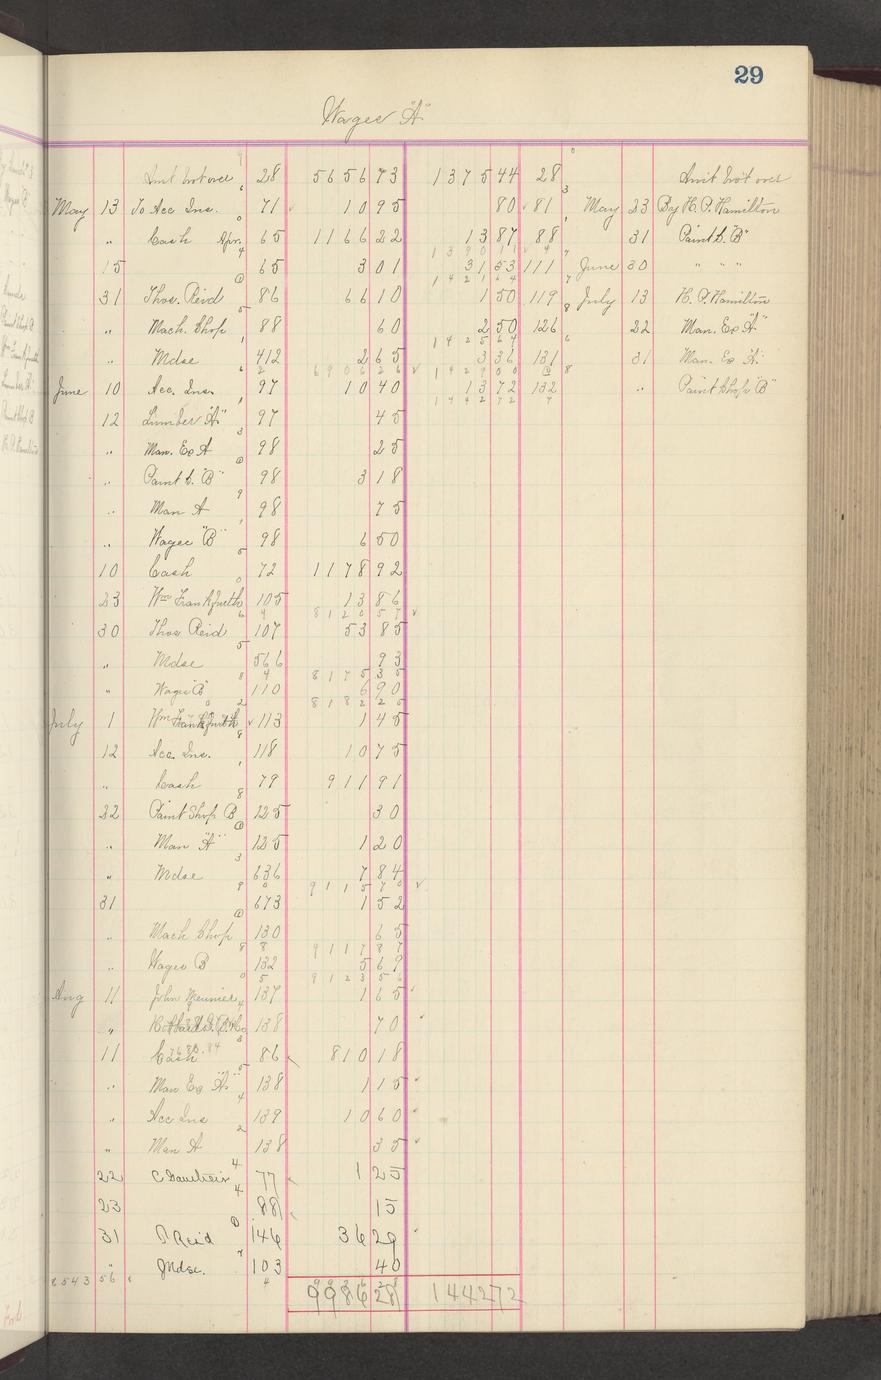 29
Wages "A"
Amt brot over 28 5656 73 1375 44 28 Amt brot over
May 13 To Acc Ins. 71 10 95 80 81 May 23 By H. P. Hamilton
" Cash Apr. 65 1166 22 13 87 88 31 Paint S. "B"
15 65 3 01 31 53 111 June 30 " " "
31 Thos. Reid 86 66 10 1 50 119 July 13 H. P. Hamilton
" Mach. Shop 88 60 2 50 126 22 Man. Ex "A"
" Mdse 412 2 65 3 36 131 31 Man. Ex "A"
6906 26 1429 00
June 10 Acc. Ins. 97 10 40 13 72 132 " Paint Shop "B"
1442 72
12 Lumber "A" 97 45
" Man. Ex A 98 25
" Paint S. "B" 98 3 18
" Man A 98 75
" Wages "B" 98 6 50
10 Cash 72 1178 92
23 Wm Frankfurth 105 13 86
8120 57
30 Thos Reid 107 53 85
" Mdse 566 93
8175 35
" Wages "B" 110 6 90
8182 25
July 1 Wm Frankfurth 113 1 45
12 Acc. Ins. 118 10 75
" Cash 79 911 91
22 Paint Shop B 125 30
" Man "A" 125 1 20
" Mdse 636 7 84
9115 70
31 673 1 52
" Mach Shop 130 65
9117 87
" Wages B 132 5 69
9123 56
Aug 11 John Meunier 137 1 65
" 138 70
11 Cash 86 810 18
" Man Ex "A" 138 1 15
" Acc Ins 139 10 60
" Man A 138 35
22 77 1 25
23 88 15
31 T Reid 146 36 29
" Mdse. 103 40
8543 56 9986 28 1442 72